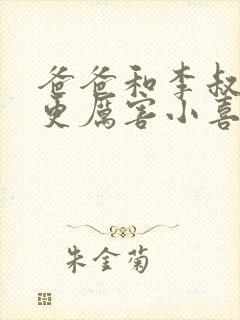 爸爸和李叔
更厉害小喜
朱金菊